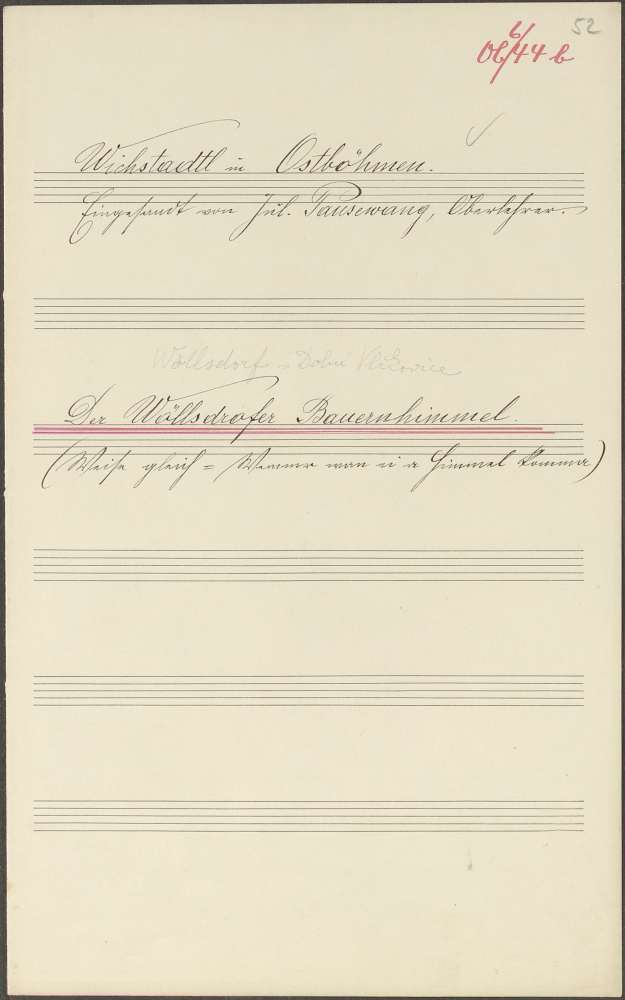 52
6/
Ob/44 b
Wichstadtl in Ostböhmen.
Eingesandt von Jul. Pausewang, Oberlehrer.
Wöllsdorf = Dolní
Der Wöllsdrofer Bauernhimmel.
(Weise gleich = Wemmr wan ei a Himmel komma)